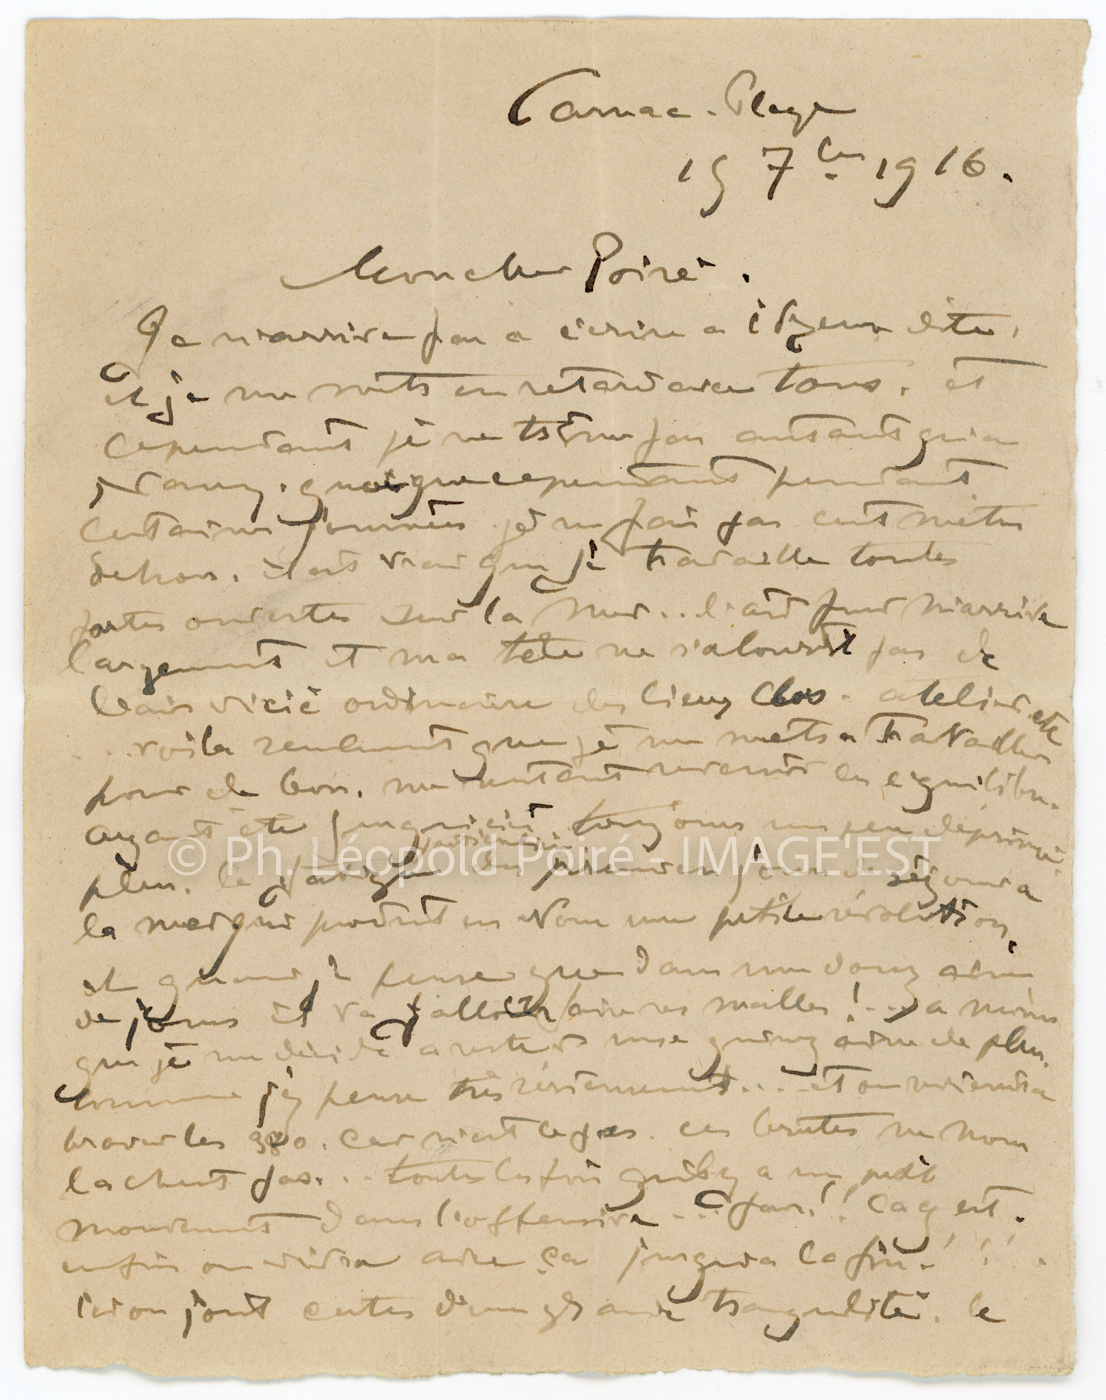 Carnac-Plage
15 7bre 1916.
Mon cher Poiré.
Je n'arrive pas a écrire a l'heure dite,
et je me mets en retard avec tous. et
cependant je ne trême pas autant qu'a
Nancy. quoique cependant pendant
certaines journées je ne fais pas cent mètres
dehors. il est vrai que je travaille toutes
portes ouvertes sur la mer... l'air pur m'arrive
largement et ma tête ne s'alourdit pas de
l'air vicié ordinaire des lieux clos. atelier etc
.. voila seulement que je me mets a travailler
pour de bon. me sentant revenir en equilibre.
ayant été jusqu'ici toujours un peu déprimé
plus. la fatigue des premiers jours de séjour a
la mer qui produit en nous une petite révolution,
et quand je pense que dans une douzaine
de jours il va falloir faire ses malles!... a moins
que je me décide a rester une quinzaine de plus.
comme j'y pense très sérieusement... et on reviendra
braver les 380. car n'est ce pas. ces brutes ne nous
lachent pas... toutes les fois qu'il y a un petit
mouvement dans l'offensive... pan!! ça y est.
enfin on vivra avec ça jusqu'a la fin!!!.
ici on jouit certes d'une grande tranquilité. le
© Ph. Léopold Poiré - IMAGE'EST